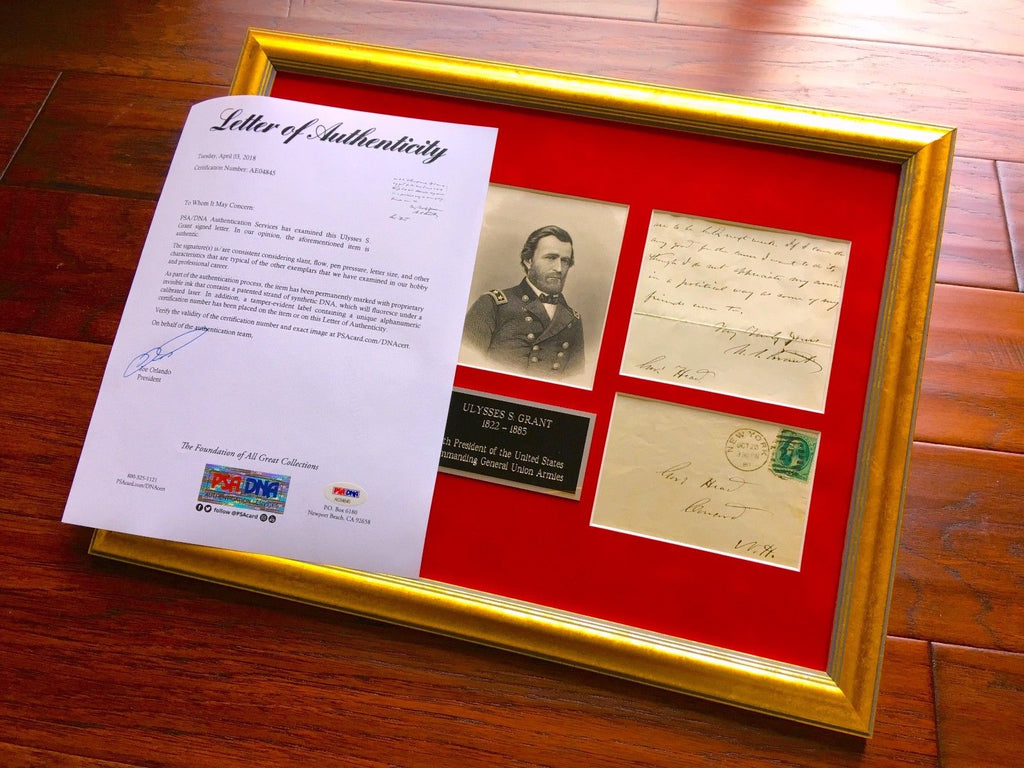 Letter of Authenticity
Tuesday, April 03, 2018
Certification Number: AE04845
To Whom It May Concern:
PSA/DNA Authentication Services has examined this Ulysses S.
Grant signed letter. In our opinion, the aforementioned item is
authentic.
The signature(s) is/are consistent considering slant, flow, pen pressure, letter size, and other
characteristics that are typical of the other exemplars that we have examined in our hobby
and professional career.
As part of the authentication process, the item has been permanently marked with proprietary
invisible ink that contains a patented strand of synthetic DNA, which will fluoresce under a
calibrated laser. In addition, a tamper-evident label containing a unique alphanumeric
certification number has been placed on the item or on this Letter of Authenticity
Verify the validity of the certification number and exact image at PSAcard.com/DNAcert.
On behalf of the authentication team,
Joe Orlando
President
The Foundation of All Great Collections
800-325-1121
PSAcard.com/DNAcert
PSA DNA
AUTHENTICATION SERVICES
follow @PSAcard
PSA DNA
AE04845
P.O. Box 6180
Newport Beach, CA 92658
ULYSSES S. GRANT
1822 – 1885
th President of the United States
mmanding General Union Armies
me to be held next week. If I can do
any good for the cause I want to do it,
though I do not appreciate my services
in a political way as some of my
friends seem to.
Very Truly Yours
U. S. Grant
Gen. Head
NEW YORK
OCT 20
81
Gen. Head
Concord
N.H.